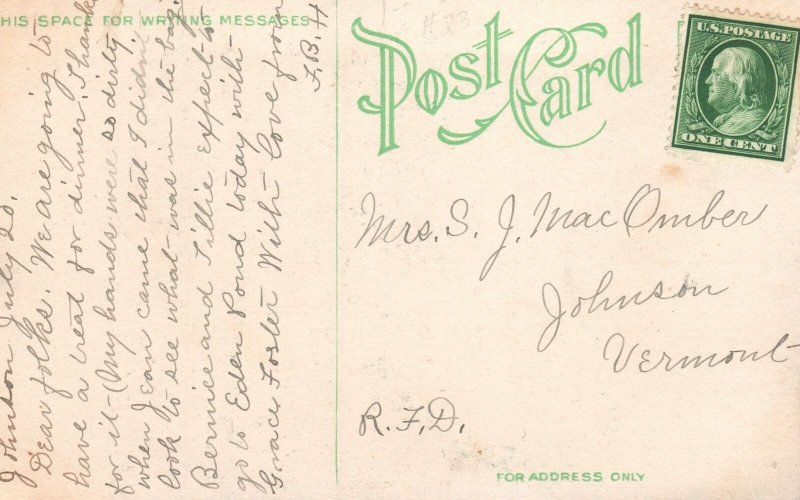 THIS SPACE FOR WRITING MESSAGES
Johnson July 20.
Dear folks. We are going to
have a treat for dinner. Thanks
for it - (My hands were so dirty
when Jean came that I didn't
look to see what was in the bag.
Bernice and Tillie expect to
go to Eden Pond today with
Gracy Foster With love from
F.B.H
#23
Post Card
U.S. POSTAGE
ONE CENT
Mrs. S. J. MacOmber
Johnson
Vermont
R.F.D.
FOR ADDRESS ONLY